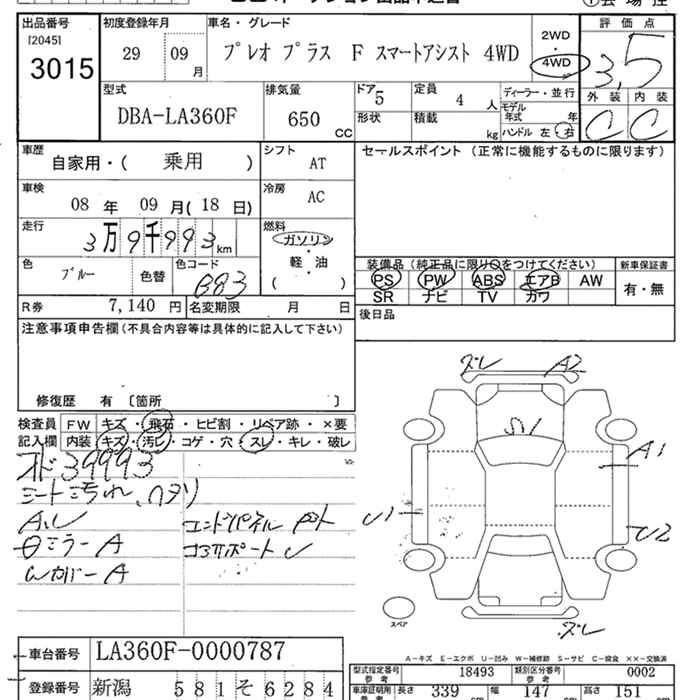 出品番号
[2045]
3015
初度登録年月
29 09 月
車名・グレード
プレオ プラス F スマートアシスト 4WD
2WD
・
4WD
評価点
3,5
外装 内装
C C
型式
DBA-LA360F
排気量
650 CC
ドア 5
形状
定員 4 人
積載 kg
ディーラー・並行
モデル年式 年
ハンドル 左・右
車歴
自家用・( 乗用 )
シフト AT
車検
08 年 09 月( 18 日)
冷房 AC
走行
3万9千993km
燃料
ガソリン
・
軽・油
( )
色 ブルー 色替
色コード B83
R券 7,140 円
名変期限 月 日
セールスポイント (正常に機能するものに限ります)
装備品(純正品に限り○をつけてください)
PS PW ABS エアB AW
SR ナビ TV カワ
新車保証書
有・無
後日品
注意事項申告欄(不具合内容等は具体的に記入して下さい)
修復歴 有 〔箇所 〕
検査員
記入欄
FW キズ・飛石・ヒビ割・リペア跡・×要
内装 キズ・汚レ・コゲ・穴・スレ・キレ・破レ
39993
A.U
ミラーA
カバーA
ズレ A2
S1
A1
U1
U2
ズレ
スペア
A-キズ E-エクボ U-凹み W-補修跡 S-サビ C-腐食 XX-交換済
車台番号 LA360F-0000787
登録番号 新潟 581そ6284
型式指定番号 参考 18493
類別区分番号 参考 0002
車庫証明用 参考 長さ 339 幅 147 高さ 151